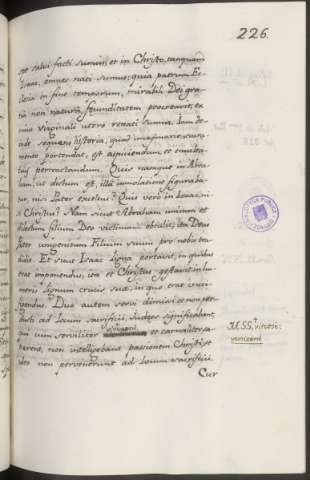 226.
spe salvi facti sumus; et in Christo, tanquam
Isaac, omnes nati sumus; quia patrum Ec-
clesia in fine temporum, mirabili Dei gra-
tia non natura, fecunditatem procreavit, ex
cujus virginali utero renati sumus. Jam de-
inde sequens historia, quid imaginarie
portendat, est aspiciendum, et
perscrutandum. Quis namque in Abra-
ham, ut dictum est, illa immolatione figuraba-
tur, nisi Pater excelsus? Quis vero in Isaac, ni-
si Christus? Nam sicut Abraham unicum et
dilectum filium Deo victimam obtulit, ita Deus
Pater unigenitum Filium suum pro nobis tra-
didit. Et sicut Isaac ligna portavit, in quibus
erat imponendus, ita et Christus gestavit in hu-
meris lignum crucis suæ, in quo erat cruci-
figendus. Duo autem servi dimissi et non per-
ducti ad locum sacrificii, Judæos significabant,
qui cum serviliter viverent et carnaliter sa-
perent, non intelligebant passionem Christi; et
ideo non pervenerunt ad locum sacrificii.
Cur
MSS.
vixerint